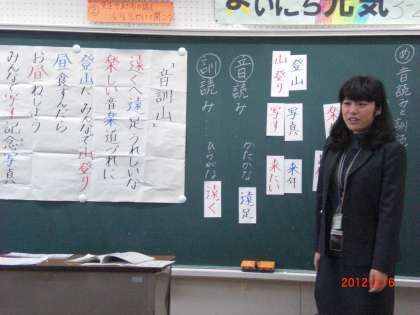 まいにち元気
め
音読みと訓
登山
山登り
写真
写す
来たい
楽
音読み…かたかな
遠足
訓読み…ひらがな
遠く
「音訓山」
遠くへ遠足うれしいな
楽しい音楽道づれに
登山だみんなで山登り
昼食すんだら
お昼ねしよう
みんなで写す記念写真